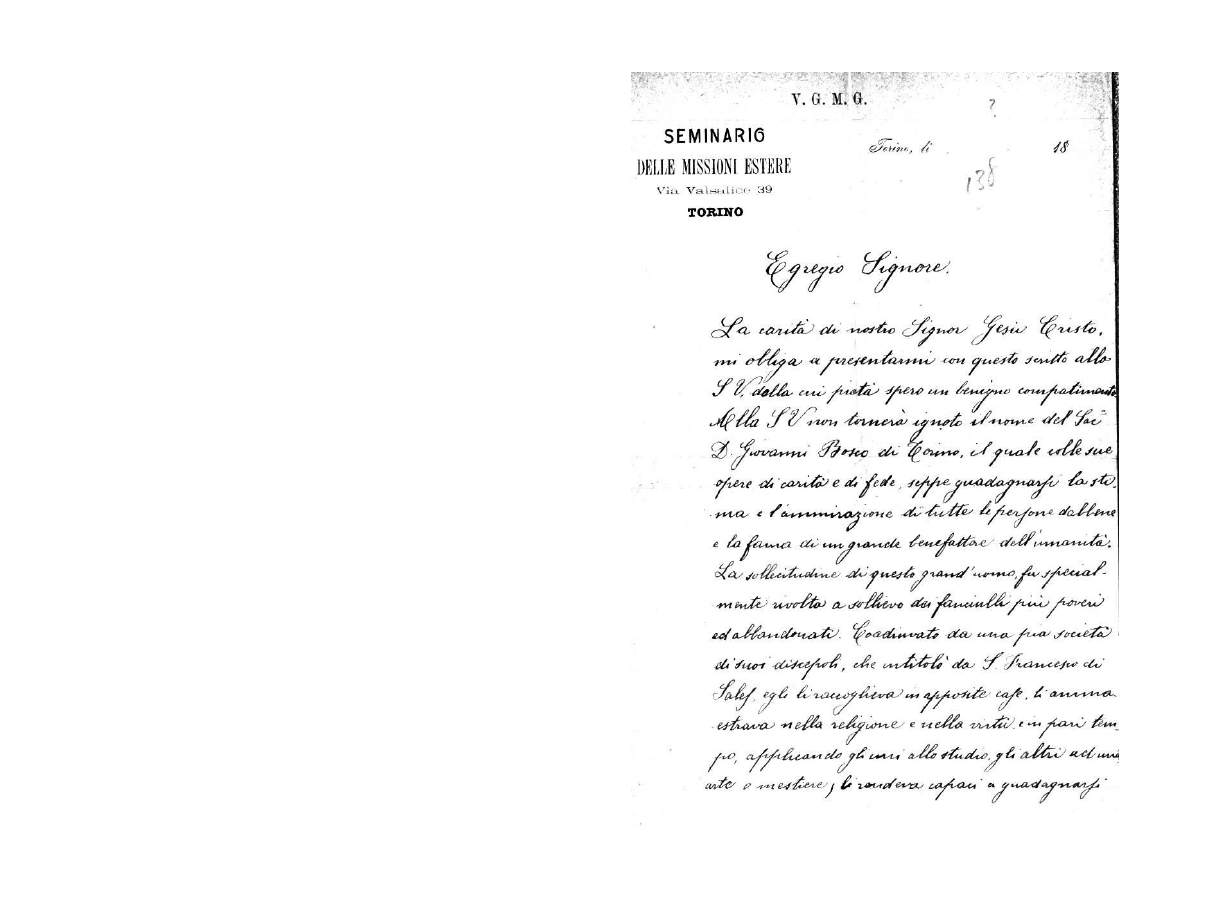 V. G. M. G.
?
SEMINARIO
DELLE MISSIONI ESTERE
Via Valsalice 39
TORINO
Torino, li 18
138
Egregio Signore.
La carità di nostro Signor Gesù Cristo,
mi obliga a presentarmi con questo scritto alla
S V, dalla cui pietà spero un benigno compatimento
Alla S V non tornerà ignoto il nome del Sac
D. Giovanni Bosco di Torino, il quale colle sue
opere di carità e di fede, seppe guadagnarsi la sti-
ma e l'ammirazione di tutte le persone dabbene
e la fama di un grande benefattore dell'umanità.
La sollecitudine di questo grand'uomo, fu special-
mente rivolta a sollievo dei fanciulli più poveri
ed abbandonati. Coadiuvato da una pia società
di suoi discepoli, che intitolò da S. Francesco di
Sales, egli li raccoglieva in apposite case, li amma
estrava nella religione e nella virtù e in pari tem-
po, applicando gli uni allo studio, gli altri ad una
arte o mestiere, li rendeva capaci a guadagnarsi